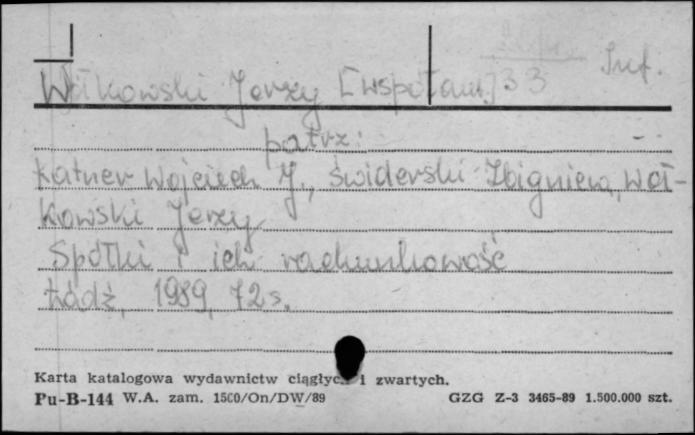 Inf.
Wołkowski Jerzy [współaut.] 33
patrz:
Katner Wojciech J., Świderski Zbigniew, Woł-
kowski Jerzy
Spółki i ich rachunkowość
Łódź, 1989, 72 s.
Karta katalogowa wydawnictw ciągłych i zwartych.
Pu-B-144 W.A. zam. 1500/On/DW/89 GZG Z-3 3465-89 1.500.000 szt.